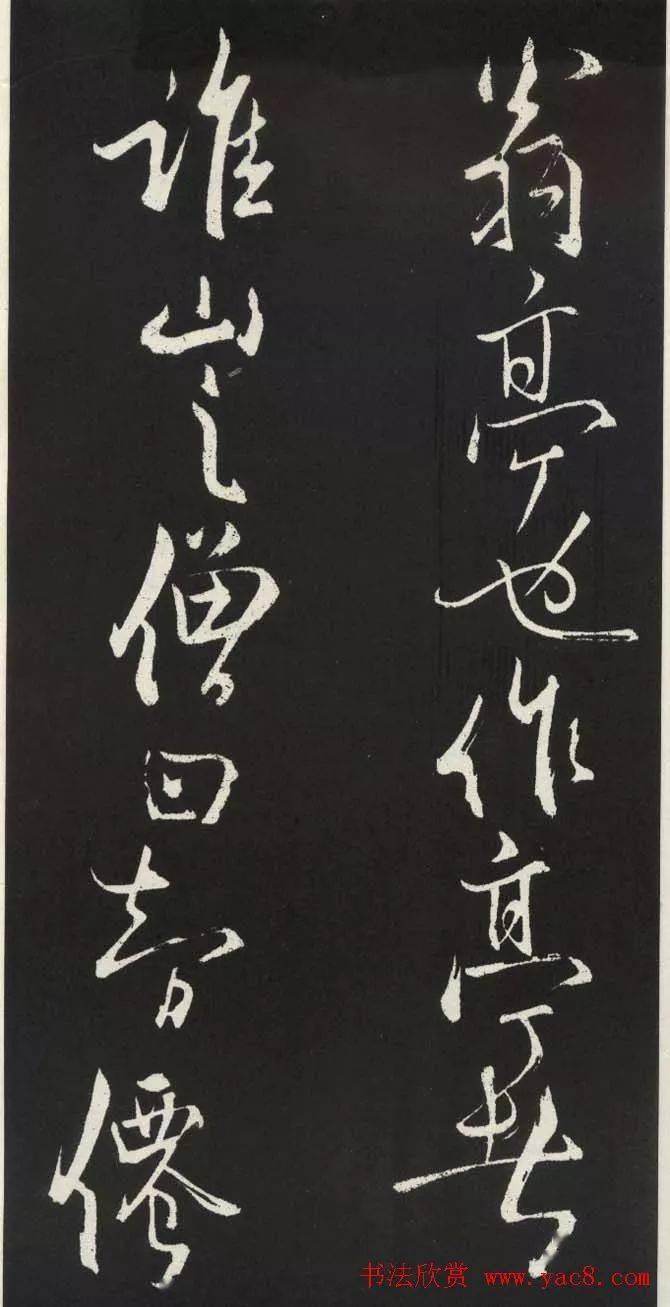 翁亭也作亭者
谁山之僧曰智僊
书法欣赏 www.yac8.com